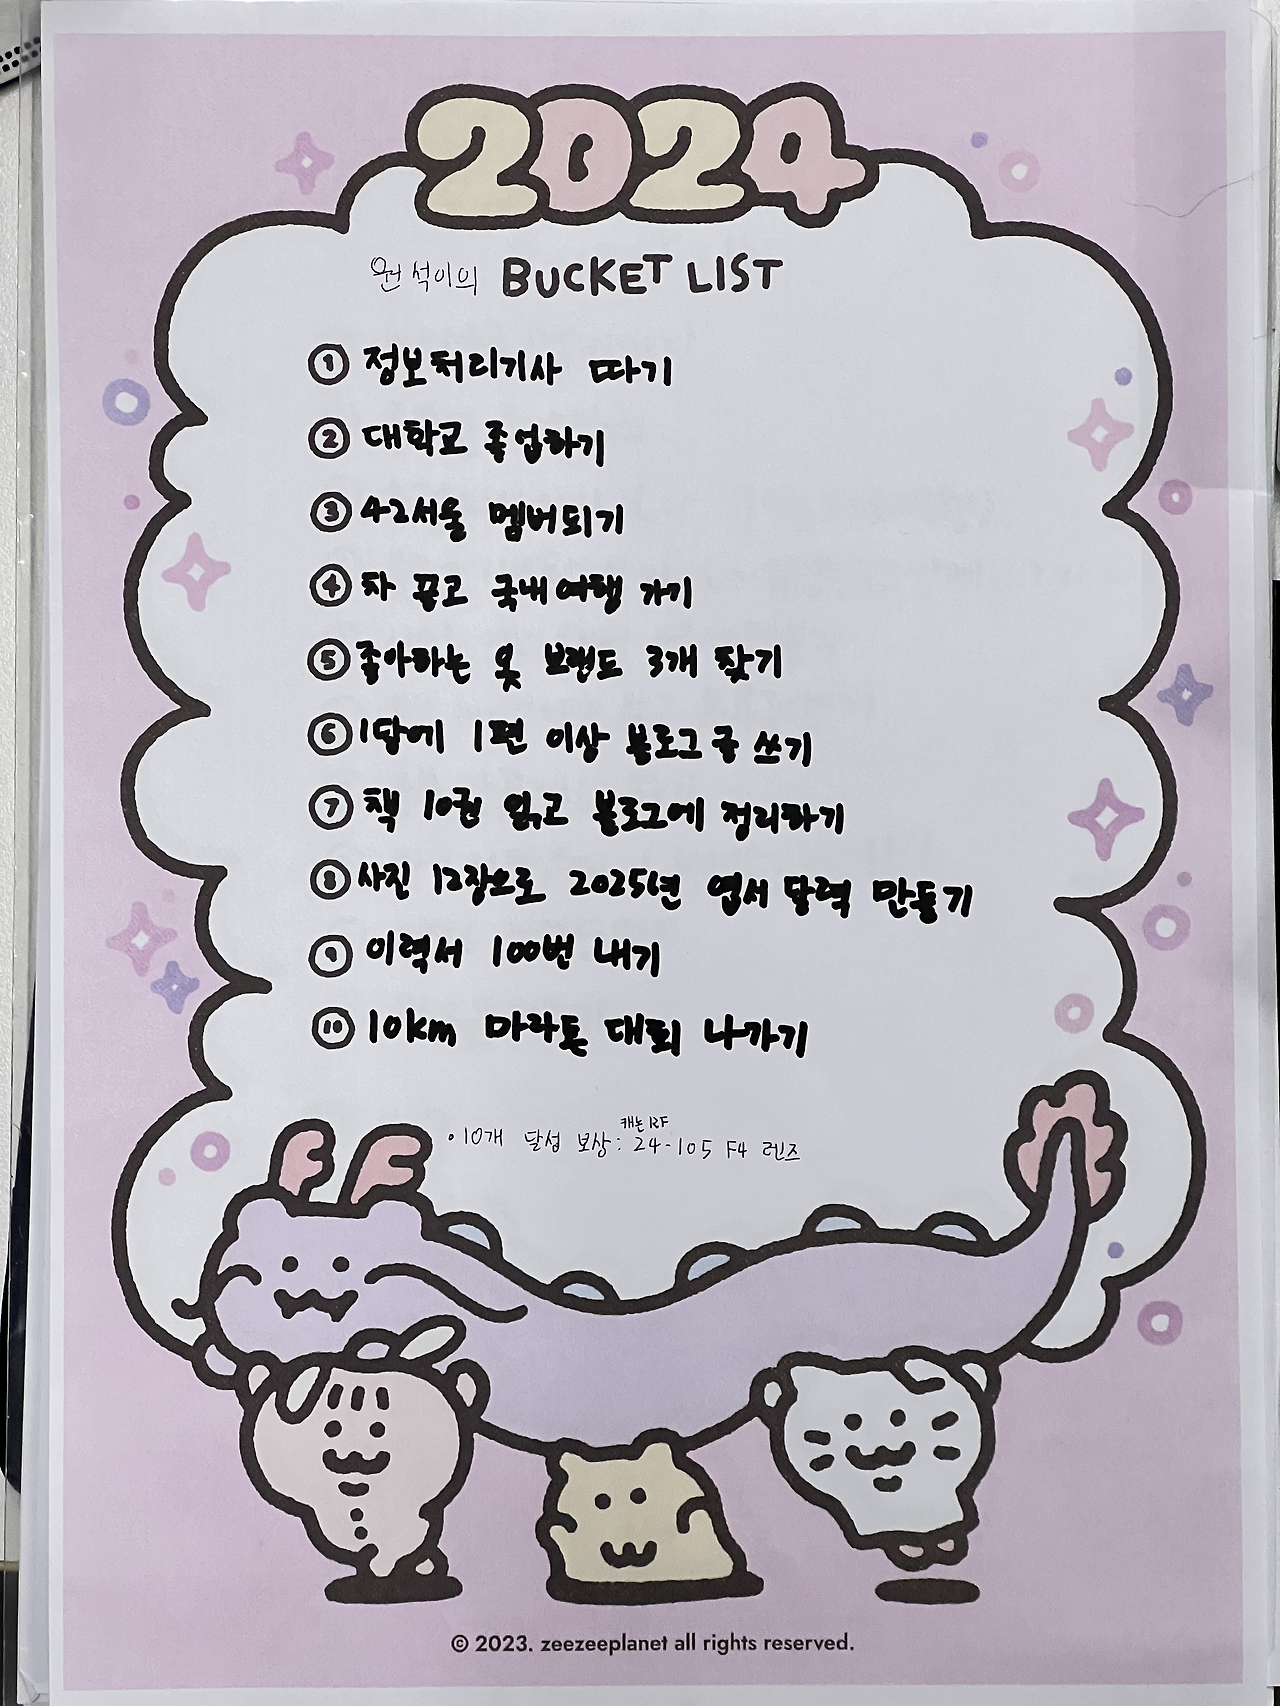 2024
원석이의 BUCKET LIST
① 정보처리기사 따기
② 대학교 졸업하기
③ 42서울 멤버되기
④ 차 끌고 국내여행 가기
⑤ 좋아하는 옷 브랜드 3개 찾기
⑥ 1달에 1편 이상 블로그 글 쓰기
⑦ 책 10권 읽고 블로그에 정리하기
⑧ 사진 12장으로 2025년 엽서 달력 만들기
⑨ 이력서 100번 내기
⑩ 10km 마라톤 대회 나가기
캐논 RF
• 10개 달성 보상: 24-105 F4 렌즈
© 2023. zeezeeplanet all rights reserved.